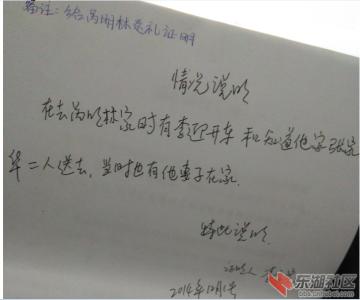 备注：给芮明林送礼证明
情况说明
在去芮明林家时有李迎开车和知道他家张宗
华二人送去，当时也有他妻子在家.
特此说明.
证明人
2014年12月1号
东湖社区
bbs.cnhubei.com